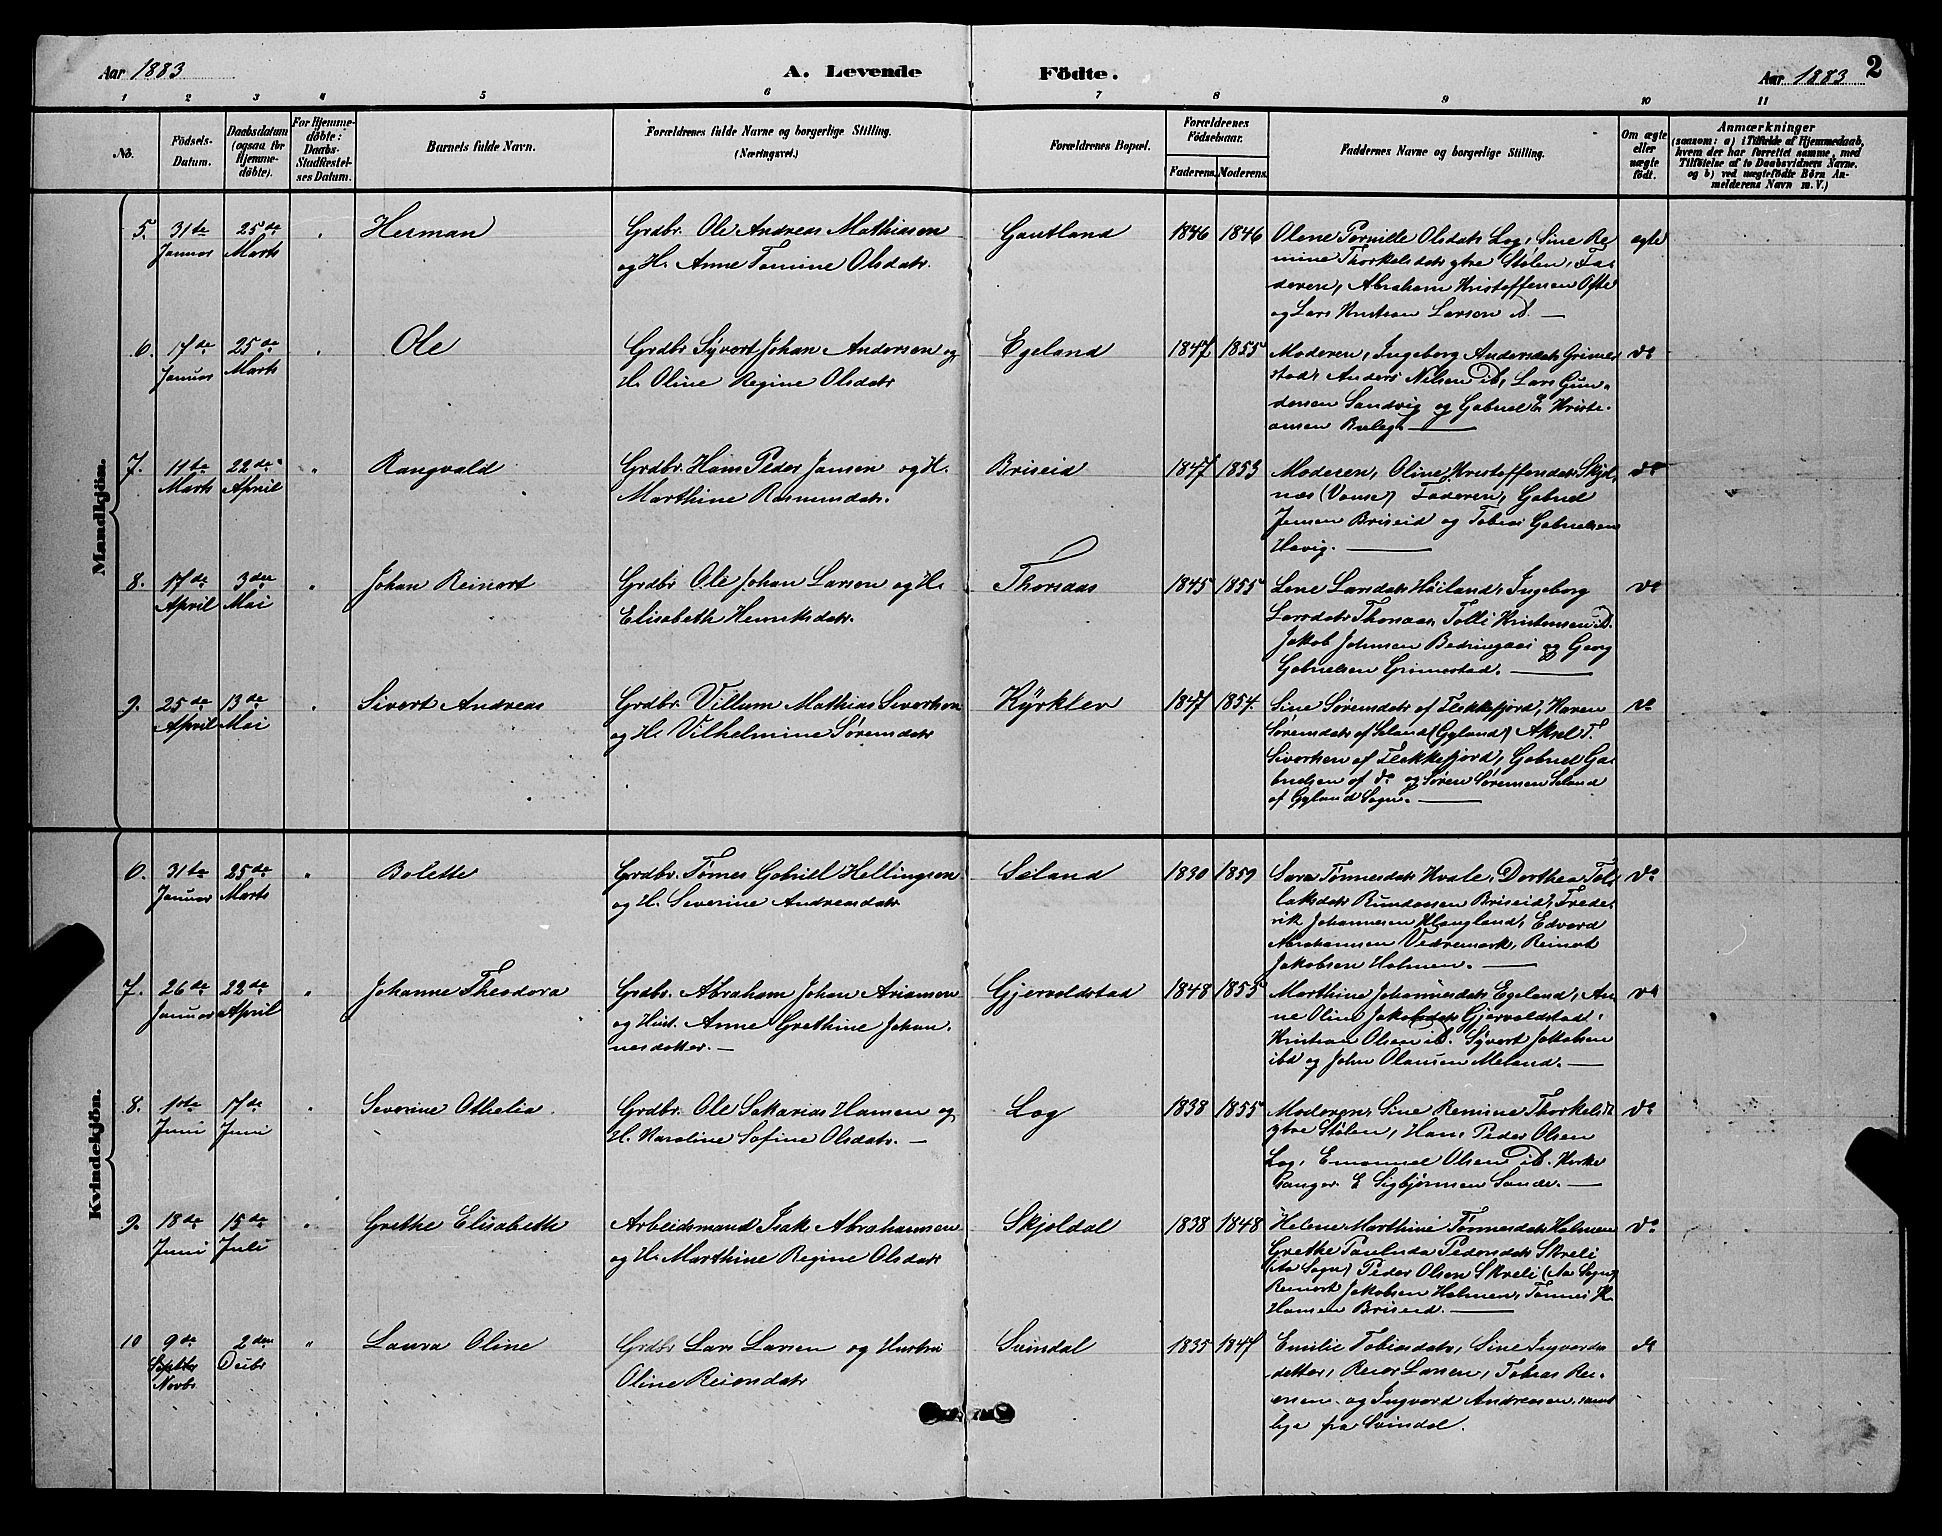 Aar 1883 A. Levende Födte. Aar 1883 2
1 2 3 4 5 6 7 8 9 10 11
No.
Födsels-
Datum.
Daabsdatum
(ogsaa for
Hjemme-
döbte).
For Hjemme-
döbte:
Daabs-
Stadfæstel-
ses Datum.
Barnets fulde Navn.
Forældrenes fulde Navne og borgerlige Stilling.
(Næringsvei.)
Forældrenes Bopæl.
Forældrenes
Födselsaar.
Faderens. Moderens.
Faddernes Navne og borgerlige Stilling.
Om ægte
eller
uægte
født.
Anmærkninger
(saasom: a) i Tilfælde af Hjemmedaab,
hvem der har forrettet samme, med
Tilföielse af to Daabsvidners Navne.
og b) ved uægtefödte Börn An-
melderens Navn m. V.)
Mandkjön.
5. 31te Januar 25de Marts " Herman
Grdbr. Ole Andreas Mathiasen
og H. Anne Tomine Olsdatr.
Gautland 1846 1846
Olene Pernille Olsdatr Log, Sine Re-
mine Thorkelsdatr ytre Stølen, Fa-
deren, Abraham Kristoffersen Ofte
og Lars Kristian Larsen ib. —
egte
6. 17de Januar 25de Marts " Ole
Grdbr Syvert Johan Andersen og
H. Oline Regine Olsdatr
Egeland 1847 1855
Moderen, Ingeborg Andersdatr Grimes-
stad, Anders Nilsen ib, Lars Gun-
dersen Sandvig og Gabriel E. Kristi-
ansen —
do
7. 11te Marts 22de April " Rangvald
Grdbr. Hans Peder Jansen og H.
Marthine Rasmusdatr.
Briseid 1847 1853
Moderen, Oline Kristoffersdatr Skjol-
næs (Vanse) Faderen, Gabriel
Jensen Briseid og Tobias Gabrielsen
Havig. —
do
8. 17de April 3die Mai " Johan Reinert
Grdbr Ole Johan Larsen og H.
Elisabeth Henriksdatr.
Thorsaas 1845 1855
Lene Larsdatr Høiland, Ingeborg
Larsdatr Thorsaas, Tolli Kristensen ib.
Jakob Johnsen og Georg
Gabrielsen Grimestad. —
do
9. 25de April 13de Mai " Sivert Andreas
Grdbr. Villum Mathias Sivertsen
og H. Vilhelmine Sørensdatr
Kyrklev 1847 1854.
Sine Sørensdatr af Flekkefjord, Karen
Sørensdatr af Seland (Gyland) Aksel T.
Sivertsen af Flekkefjord, Gabriel Ga-
brielsen af do og Søren Sørensen Seland
af Gyland Sogn. —
do
Kvindekjön.
6. 31te Januar 25de Marts " Bolette
Grdbr. Tørnes Gabriel Hellingsen
og H. Severine Andreasdatr
Seland 1830 1859
Sara Tønnesdatr Hvale, Dorthea Tol-
laksdatr Briseid, Frede-
rik Johannesen Haugland, Edvard
Abrahamsen Vedremark, Reinert
Jakobsen Holmen. —
do
7. 26de Januar 22de April " Johanne Theodora
Grdbr. Abraham Johan Ariansen
og Hust. Anne Grethine Johan-
nesdatter. —
Gjervoldstad 1848 1855
Marthine Johannesdatr Egeland, An-
ne Oline Jakobsdatr Gjervoldstad,
Kristian Olsen ib. Syvert Jakobsen
ibd og John Olausen Meland. —
do
8. 1ste Juni 17de Juni " Severine Othelia.
Grdbr. Ole Sakarias Hansen og
H. Karoline Sofine Olsdatr. —
Log 1838 1855
Moderen, Sine Remine Thorkelsd.
ytre Stølen, Hans Peder Olsen
Log, Emanuel Olsen ib. Kirke-
sanger E Sigbjørnsen Sande. —
do
9. 18de Juni 15de Juli " Grethe Elisabeth
Arbeidsmand Isak Abrahamsen
og H. Marthine Regine Olsdatr
Skjoldal 1838 1848
Helene Marthine Tønnesdatr Holmen
Grethe Paulinda Pedersdatr Skreli
(Aa Sogn) Peder Olsen Skreli (Aa Sogn)
Reinert Jakobsen Holmen, Tønnes K.
Hansen Briseid. —
do
10 9de Septbr Novbr. 2den Decbr " Laura Oline
Grdbr Lars Larsen og Hustru
Oline Reiersdatr
Svindal 1835 1847
Emilie Tobiasdatr, Sine Ingvards-
detter, Reier Larsen, Tobias Rei-
ersen og Ingvard Andreasen, samt-
lige fra Svindal.
do